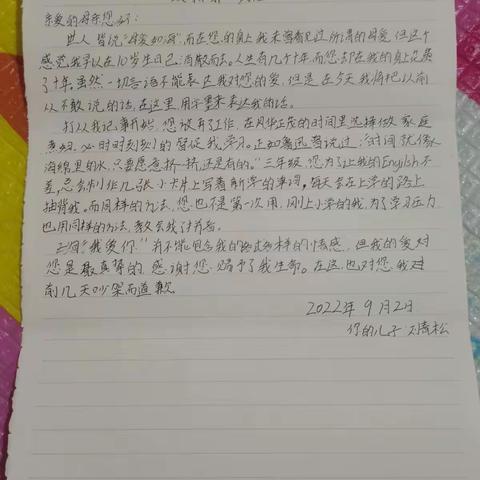 亲爱的母亲您好：
世人皆说“母爱如海”而在您的身上我未曾看见过所谓的母爱，但这个
感觉我早以在10岁生日己消散而去。人生有几个十年，而您却在我的身上花费
了十年，虽然一切言语不能表达我对您的爱，但是在今天我将把以前
从不敢说的话，在这里，用来表达我的话。
打从我记事开始，您没有了工作，在风华正茂的时间里选择做家庭
煮妇，必时时刻刻的督促我学习。正如鲁迅曾说过：“时间就像
海绵里的水，只要愿意挤一挤，还是有的。”三年级，您为了让我的English不
差，总会制作几张小卡片上写着新学的单词，每天会在上学的路上
抽背我。而同样的方法，您也不是第一次用，刚上小学的我，为了学习压力
也用同样的方法，教会我汉语拼音。
一句“我爱你”并不能包含我的各式各样的情感，但我的爱对
您是最真挚的，感谢您赐予了我生命。在这，也对您，我对
前几天吵架而道歉
2022年9月2日
你的儿子 青松